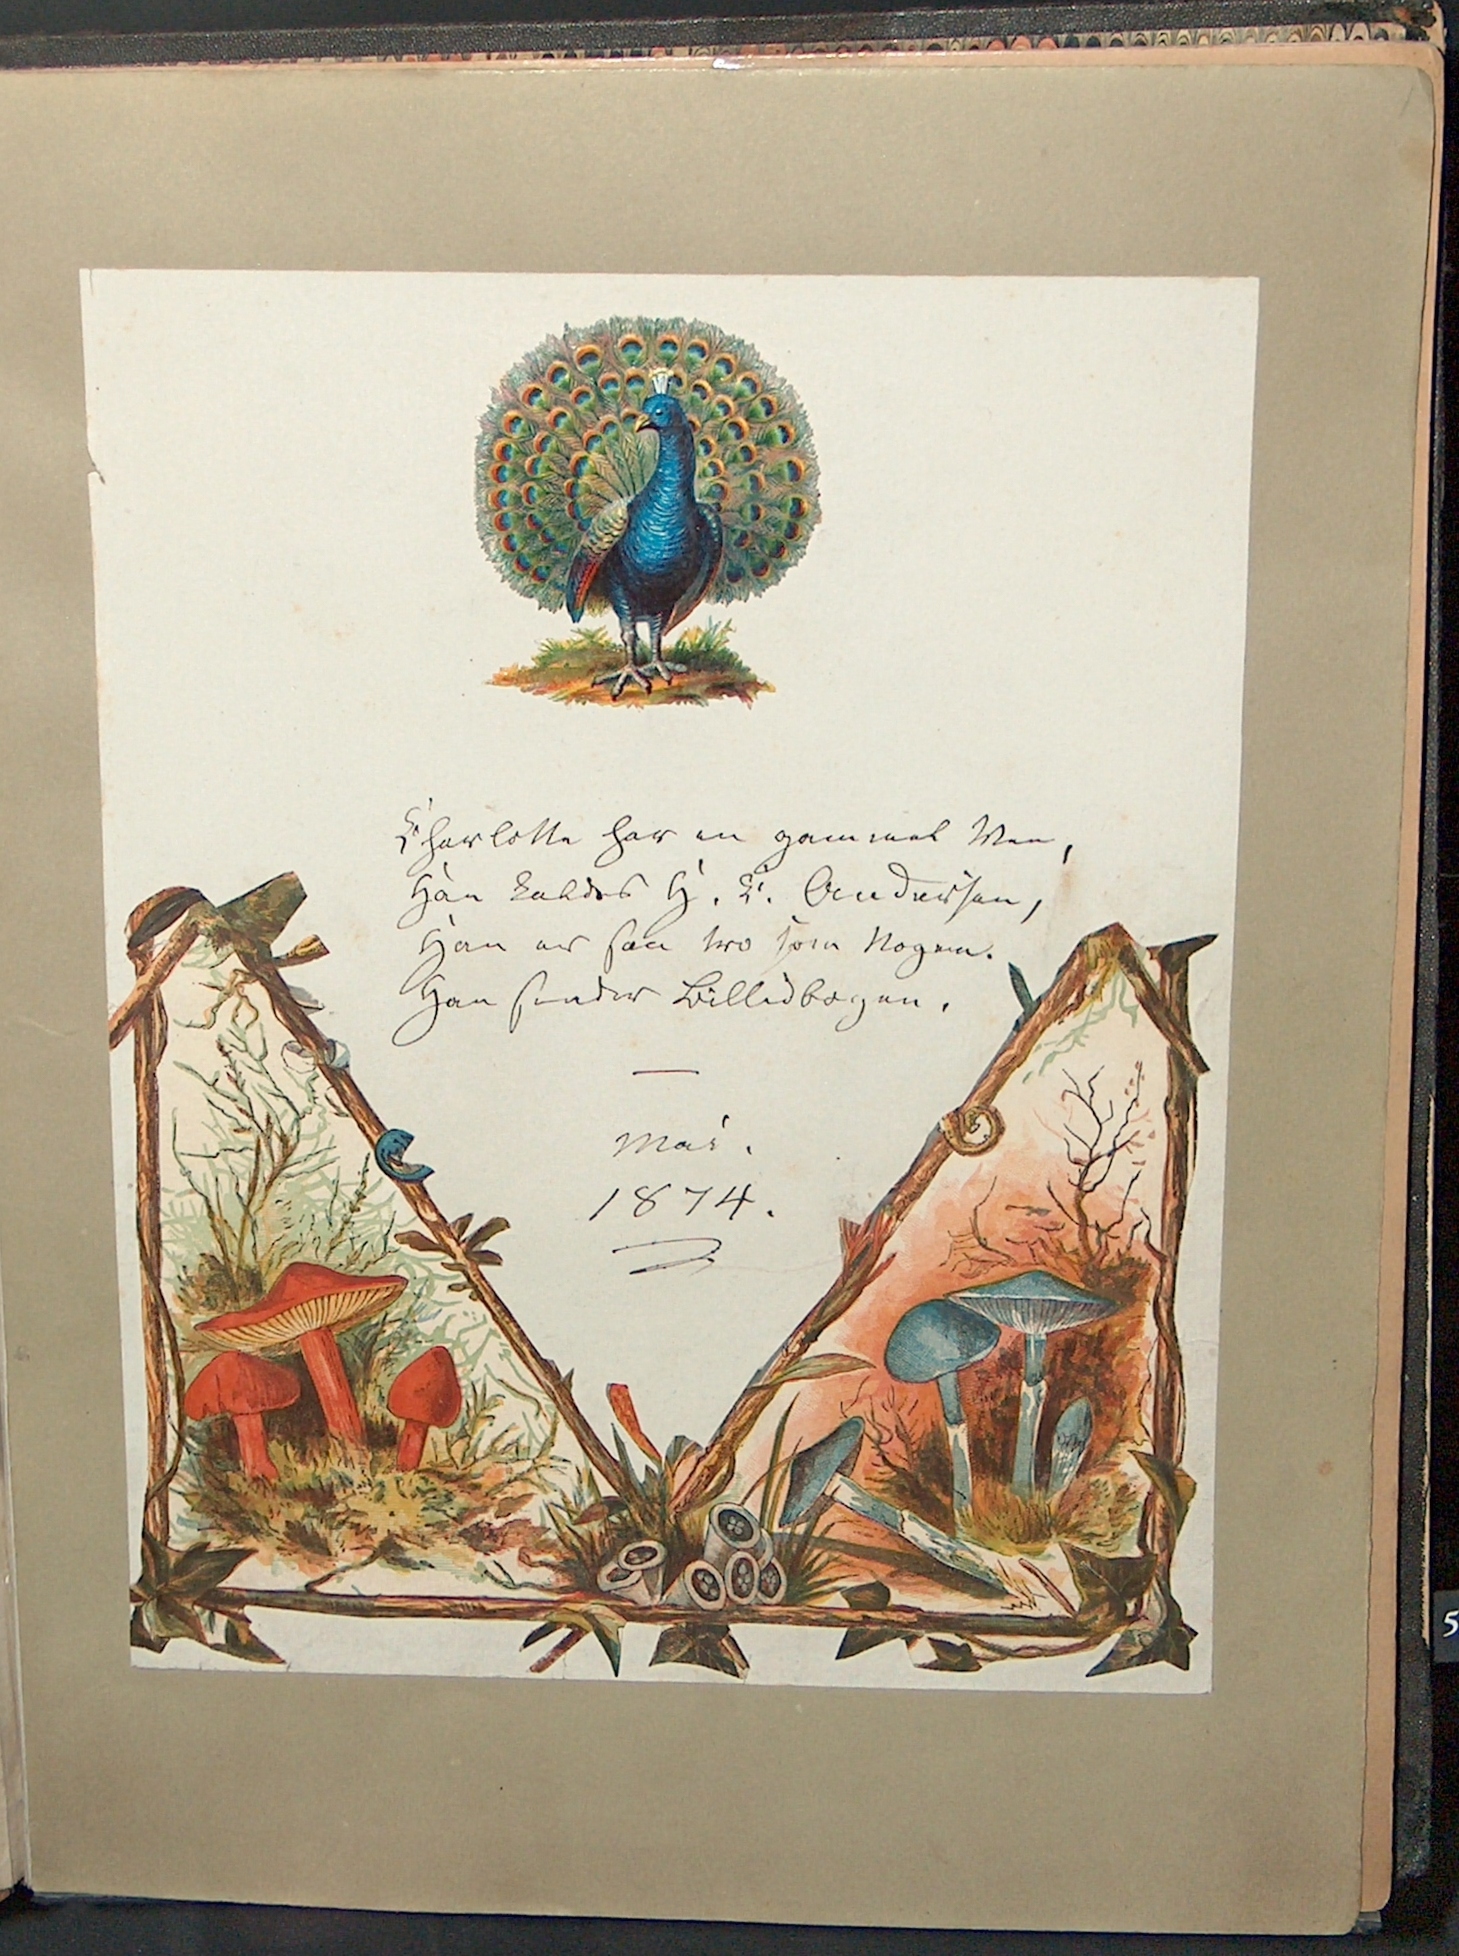 Charlotte har en gammel Ven,
Han kaldes H. C. Andersen,
Han er saa tro som Nogen.
Han sender Billedbogen.
Mai.
1874.
5